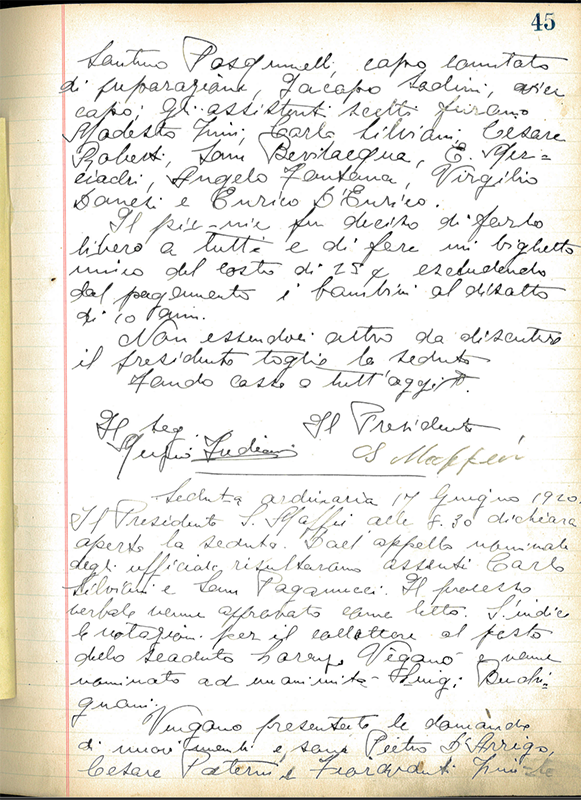 45
Santino Pasquinelli, capo comitato
di preparazione, Jacopo Sodini, vice
capo; gli assistenti scelti furono
Modesto Zini, Carlo Silviani, Cesare
Roberti, Sam Bevilacqua, E.
Angelo Fontana, Virgilio
Danesi e Enrico D'Enrico.
Il pic-nic fu deciso di farlo
libero a tutti e di fare un biglietto
unico del costo di 25 ¢ escludendo
dal pagamento i bambini al disotto
di 10 anni.
Non essendovi altro da discutere
il presidente toglie la seduta
Fondo cassa a tutt'oggi $.
Il Seg. Il Presidente
S Maffei
Seduta ordinaria 17 Giugno 1920.
Il Presidente S. Maffei alle 8.30 dichiara
aperta la seduta. Dall appello nominale
degli ufficiali risultarono assenti Carlo
Silviani e Sam Paganucci. Il processo
verbale venne approvato come letto. S'indice
le votazioni per il collettore al posto
dello scaduto Viganò e venne
nominato ad unanimità Luigi Buchi-
gnani.
Vengono presentate le domande
di nuovi membri e sono Pietro D'Arrigo,
Cesare Paterni, e Zini